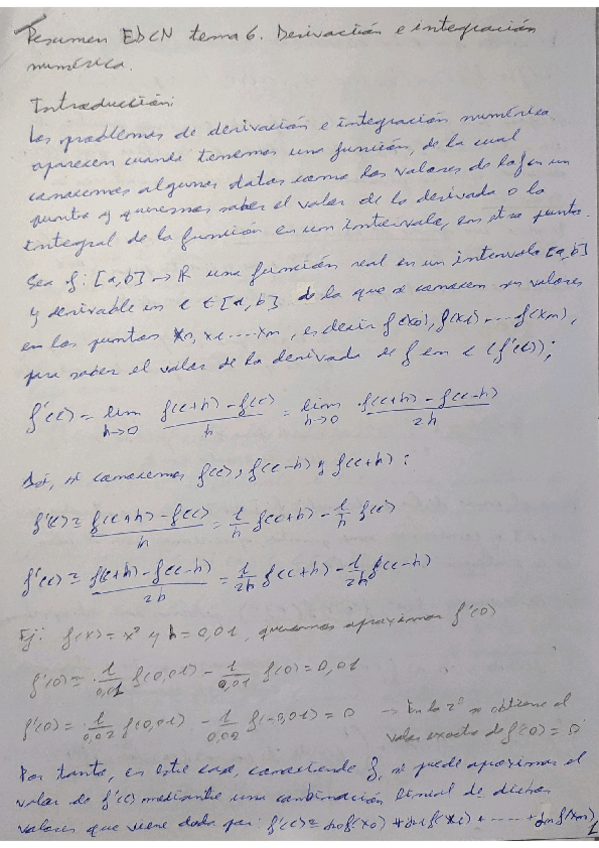 Resumen EDCN tema 6. Derivación e integración
numérica.
Introducción:
Los problemas de derivación e integración numérica
aparecen cuando tenemos una función, de la cual
conocemos algunos datos como los valores de la f en un
punto y queremos saber el valor de la derivada o la
integral de la función en un intervalo, en otro punto.
Sea f: [a,b] → R una función real en un intervalo [a,b]
y derivable en c ∈ [a,b] de la que se conocen sus valores
en los puntos x0, x1 .... xm, es decir f(x0), f(x1) .... f(xm),
para saber el valor de la derivada de f en c (f'(c));
f'(c) = lim h→0 (f(c+h) - f(c))/h = lim h→0 (f(c+h) - f(c-h))/2h
Así, si conocemos f(c), f(c-h) y f(c+h):
f'(c) ≈ (f(c+h) - f(c))/h = 1/h f(c+h) - 1/h f(c)
f'(c) ≈ (f(c+h) - f(c-h))/2h = 1/2h f(c+h) - 1/2h f(c-h)
Ej: f(x) = x² y h = 0,01, queremos aproximar f'(0)
f'(0) = 1/0,01 f(0,01) - 1/0,01 f(0) = 0,01
f'(0) = 1/0,02 f(0,01) - 1/0,02 f(-0,01) = 0 → En la 2ª se obtiene el
valor exacto de f'(0) = 0
Por tanto, en este caso, conociendo f, se puede aproximar el
valor de f'(c) mediante una combinación lineal de dichos
valores que viene dada por: f'(c) ≈ α0f(x0) + α1f(x1) + ..... + αmf(xm)
1